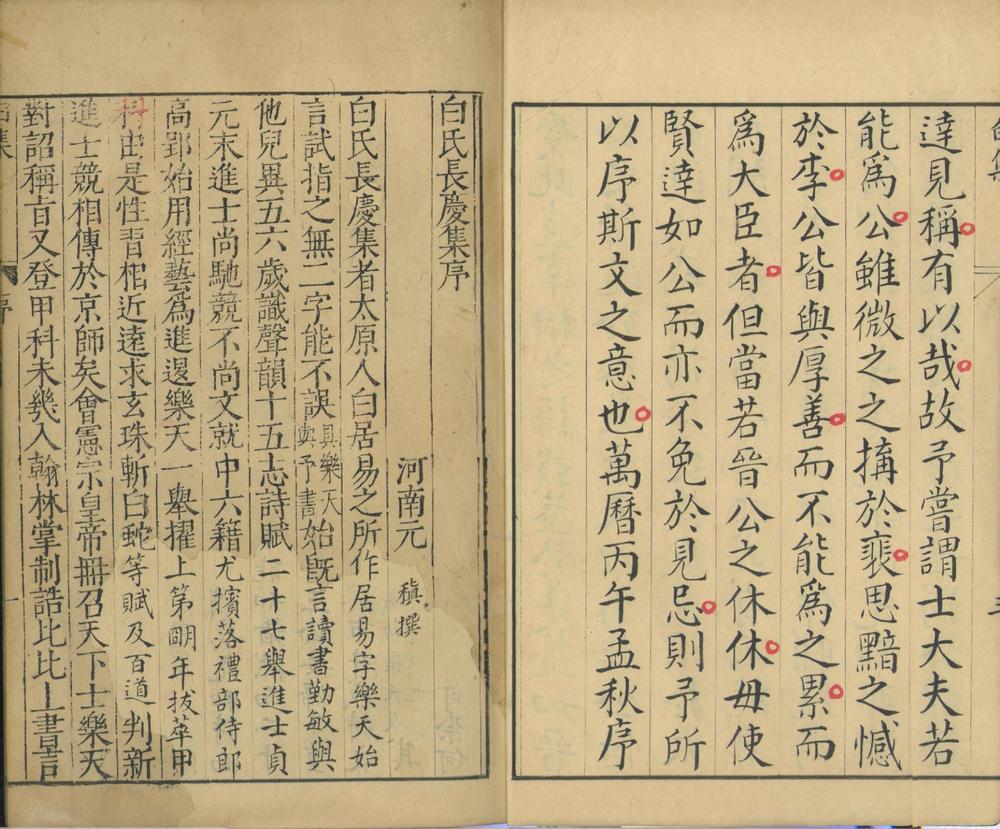 達見稱有以哉故予嘗謂士大夫若
能爲公雖微之之搆於裴思黯之憾
於李公皆與厚善而不能爲之累而
爲大臣者但當若晉公之休休毋使
賢達如公而亦不免於見忌則予所
以序斯文之意也萬曆丙午孟秋序
白氏長慶集序
河南元 稹撰
白氏長慶集者太原人白居易之所作居易字樂天始
言試指之無二字能不誤具樂天與予書始旣言讀書勤敏與
他兒異五六歲識聲韻十五志詩賦二十七舉進士貞
元末進士尚馳競不尚文就中六籍尤擯落禮部侍郎
高郢始用經藝爲進退樂天一舉擢上第明年拔萃甲
科由是性習相近遠求玄珠斬白蛇等賦及百道判新
進士競相傳於京師矣會憲宗皇帝冊召天下士樂天
對詔稱旨又登甲科未幾入翰林掌制誥比比上書言